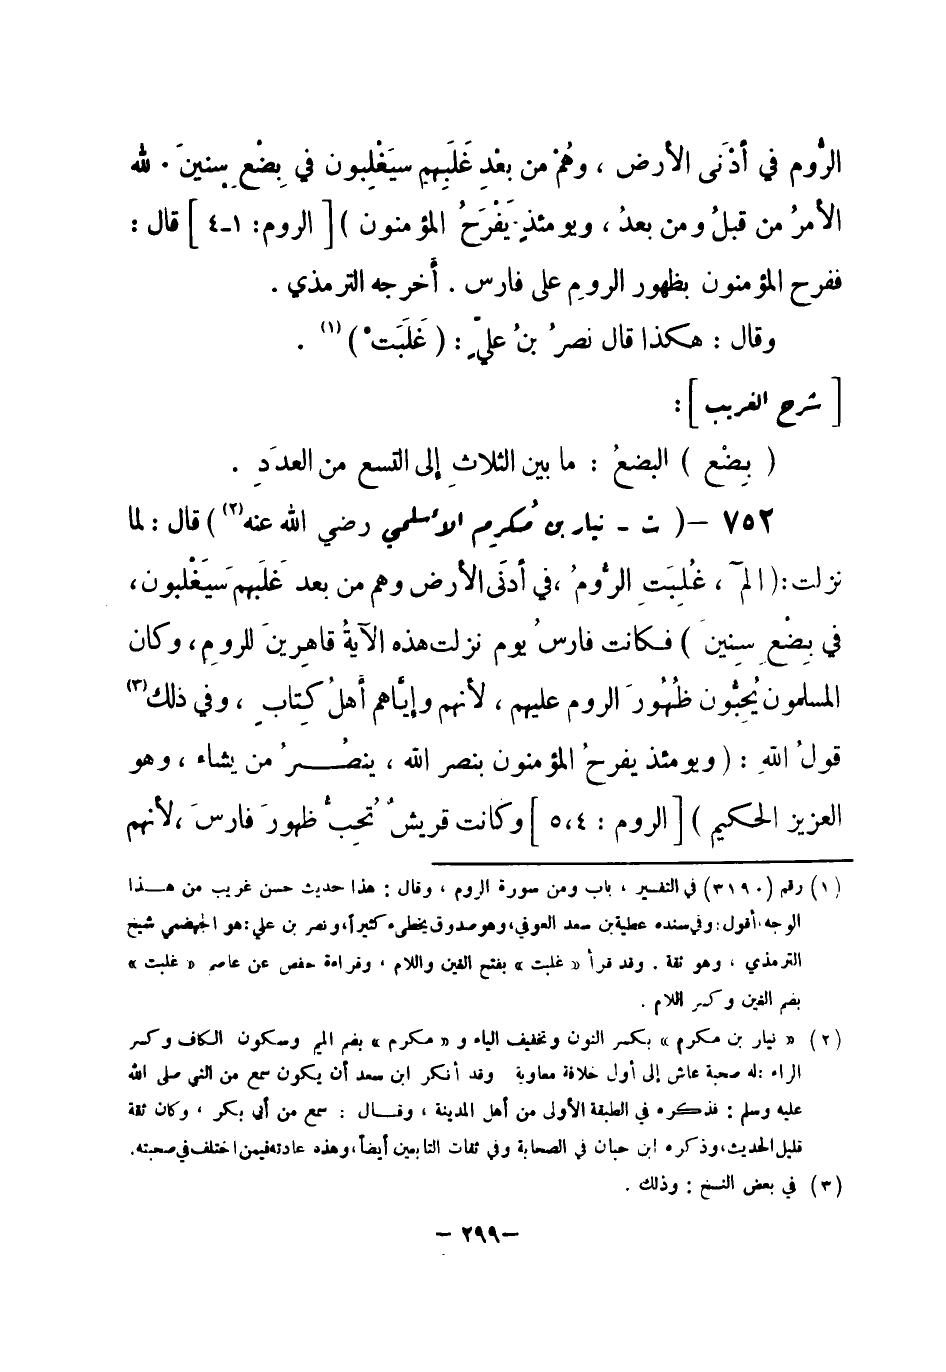 الرُّوم في أدْنَى الأرض ، وهُمْ من بعْدِ غَلَبِهِم سيَغْلِبون في بِضْعِ سِنينَ . لله
الأمرُ من قبلُ ومن بعدُ ، ويومئذٍ يَفْرَحُ المؤمنون ) [ الروم: ١-٤ ] قال :
ففرح المؤمنون بظهور الرومِ على فارس . أخرجه الترمذي .
وقال : هكذا قال نصرُ بنُ عليٍّ : ( غَلَبَتْ ) (١) .
[ شرح الغريب ] :
( بِضْع ) البضعُ : ما بين الثلاثِ إلى التسع من العدَدِ .
٧٥٢ – ( ت - نيار بن مُكرِم الأسلمي رضي الله عنه (٢) ) قال : لما
نزلت : ( الم ، غُلِبَتِ الرُّومُ ، في أدنَى الأرض وهم من بعد غَلَبِهِم سَيَغْلبون ،
في بِضْعِ سِنِينَ ) فكانت فارسُ يوم نزلت هذه الآيةُ قاهِرينَ للرومِ ، وكان
المسلمون يُحِبُّون ظُهُورَ الروم عليهم ، لأنهم وإيَّاهم أهلُ كِتابٍ ، وفي ذلك (٣)
قولُ اللهِ : ( ويومئذ يفرحُ المؤمنون بنصر الله ، ينصُرُ من يشاء ، وهو
العزيز الحكيم ) [ الروم : ٥،٤ ] وكانت قريشٌ تُحِبُّ ظهورَ فارسَ ، لأنهم
(١) رقم (٣١٩٠) في التفسير ، باب ومن سورة الروم ، وقال : هذا حديث حسن غريب من هذا
الوجه ، أقول : وفي سنده عطية بن سعد العوفي ، وهو صدوق يخطىء كثيراً ، ونصر بن علي : هو الجهضمي شيخ
الترمذي ، وهو ثقة . وقد قرأ « غلبت » بفتح الغين واللام ، وقراءة حفص عن عاصم « غلبت »
بضم الغين وكسر اللام .
(٢) « نيار بن مكرم » بكسر النون وتخفيف الياء و « مكرم » بضم الميم وسكون الكاف وكسر
الراء : له صحبة عاش إلى أول خلافة معاوية وقد أنكر ابن سعد أن يكون سمع من النبي صلى الله
عليه وسلم : فذكره في الطبقة الأولى من أهل المدينة ، وقال : سمع من أبي بكر ، وكان ثقة
قليل الحديث ، وذكره ابن حبان في الصحابة وفي ثقات التابعين أيضاً ، وهذه عادته فيمن اختلف في صحبته .
(٣) في بعض النسخ : وذلك .
– ٢٩٩ –